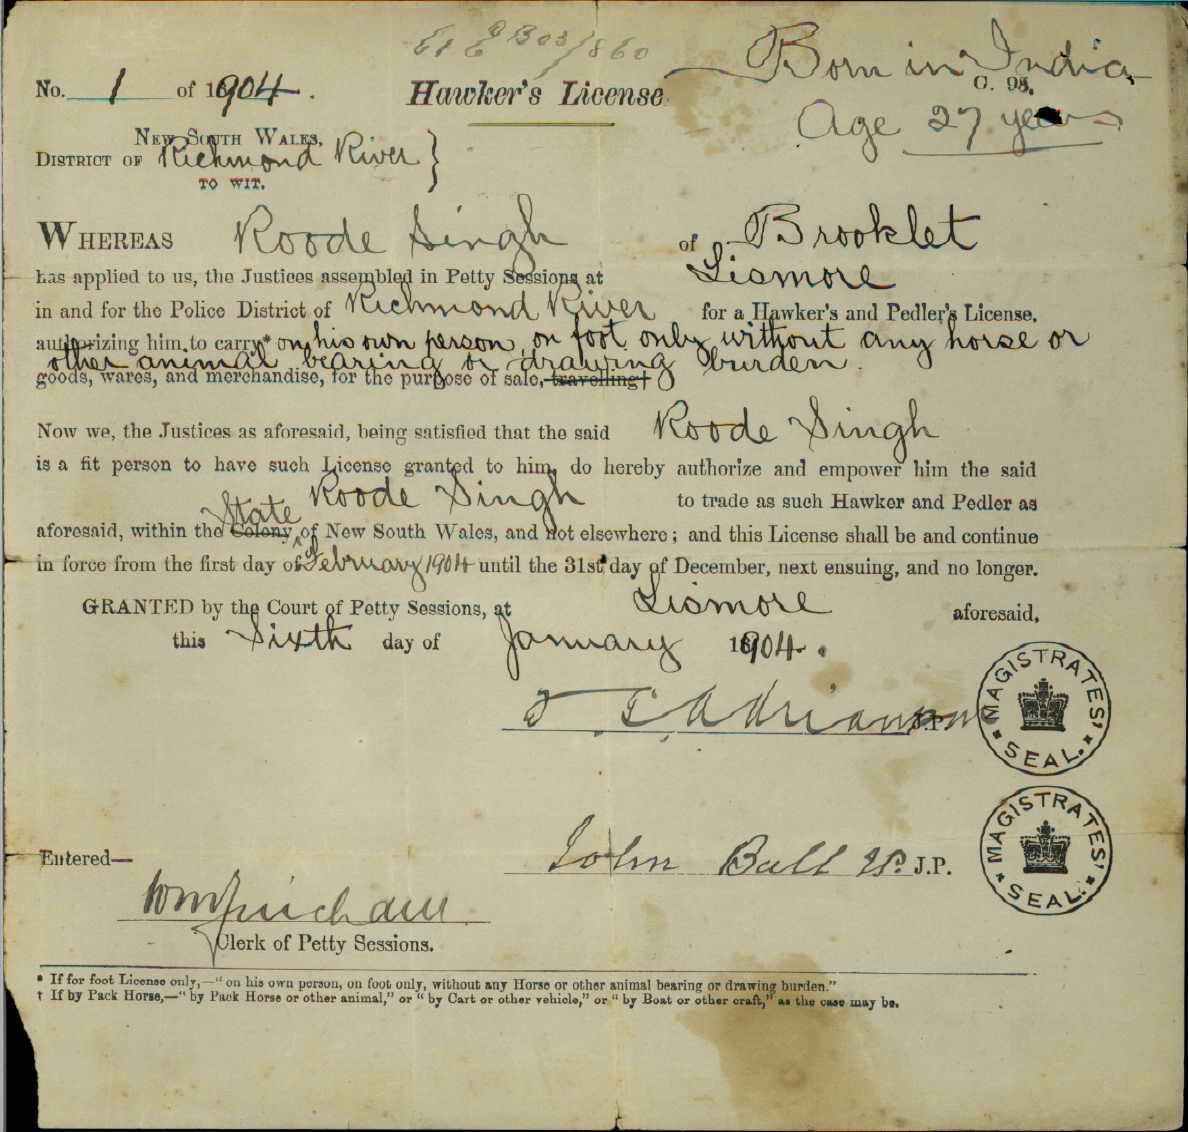 E1 E B03/860
Born in India
No. 1 of 1904.
Hawker's License.
C. 98.
Age 27 years
NEW SOUTH WALES,
DISTRICT OF Richmond River }
TO WIT.
WHEREAS Roode Singh of Brooklet
has applied to us, the Justices assembled in Petty Sessions at Lismore
in and for the Police District of Richmond River for a Hawker's and Pedler's License,
authorizing him to carry* on his own person, on foot only without any horse or
other animal bearing or drawing burden.
goods, wares, and merchandise, for the purpose of sale, travelling†
Now we, the Justices as aforesaid, being satisfied that the said Roode Singh
is a fit person to have such License granted to him, do hereby authorize and empower him the said
Roode Singh to trade as such Hawker and Pedler as
State
aforesaid, within the Colony of New South Wales, and not elsewhere; and this License shall be and continue
in force from the first day of February 1904 until the 31st day of December, next ensuing, and no longer.
GRANTED by the Court of Petty Sessions, at Lismore aforesaid,
this Sixth day of January 1904.
J.P.
MAGISTRATES' SEAL.
Entered—
John Ball J.P.
MAGISTRATES' SEAL.
Clerk of Petty Sessions.
* If for foot License only,—"on his own person, on foot only, without any Horse or other animal bearing or drawing burden."
† If by Pack Horse,—"by Pack Horse or other animal," or "by Cart or other vehicle," or "by Boat or other craft," as the case may be.